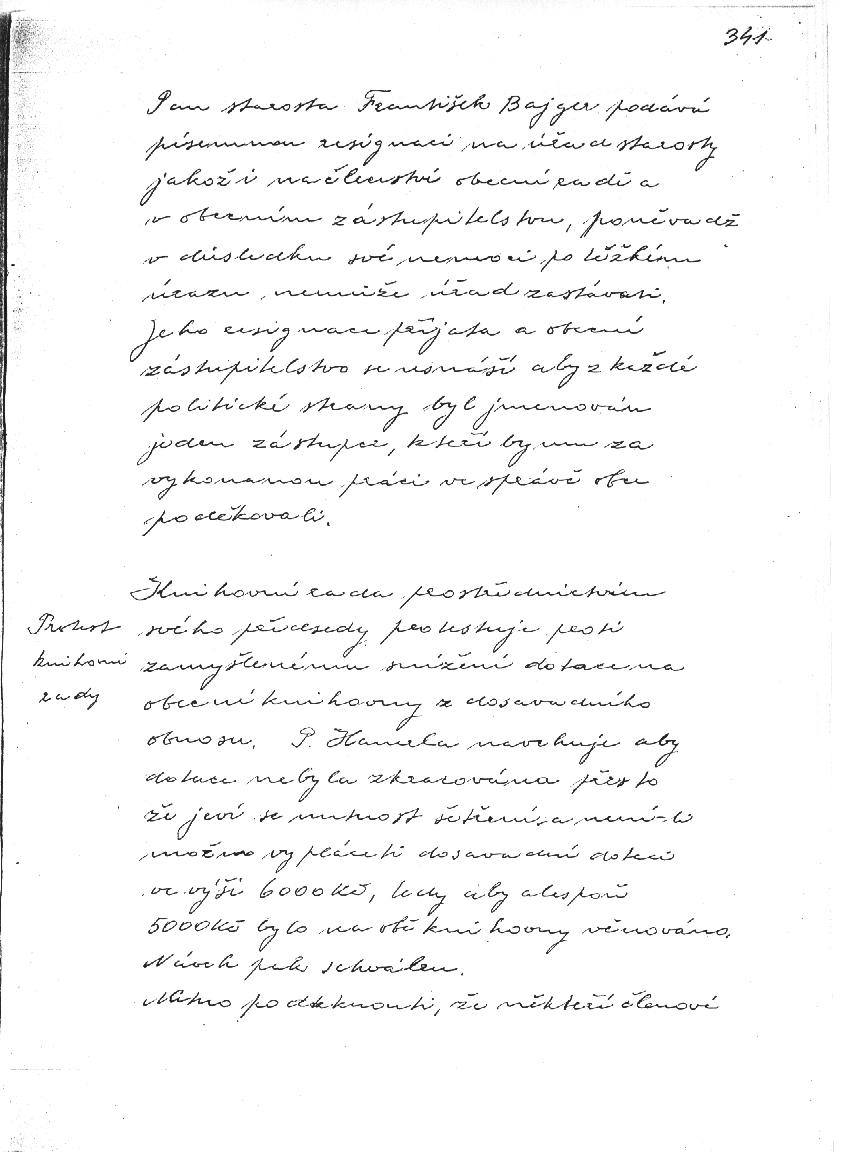 341
Pan starosta František Bajger podává
písemnou resignaci na úřad starosty
jakož i na členství obecní radě a
v obecním zástupitelstvu, poněvadž
v důsledku své nemoci po těžkém
úrazu nemůže úřad zastávati.
Jeho resignace přijata a obecní
zástupitelstvo se usnáší aby z každé
politické strany byl jmenován
jeden zástupce, kteří by mu za
vykonanou práci ve správě obce
poděkovali.
Knihovní rada prostřednictvím
Protest
knihovní
rady
svého předsedy protestuje proti
zamyšlenému snížení dotace na
obecní knihovny z dosavadního
obnosu. P. Hamela navrhuje aby
dotace nebyla zkracována přes to
že jeví se nutnost šetření, a není-li
možno vypláceti dosavadní dotaci
ve výši 6000 Kč, tedy aby alespoň
5000 Kč bylo na obě knihovny věnováno.
Návrh pak schválen.
Nutno podotknouti, že někteří členové